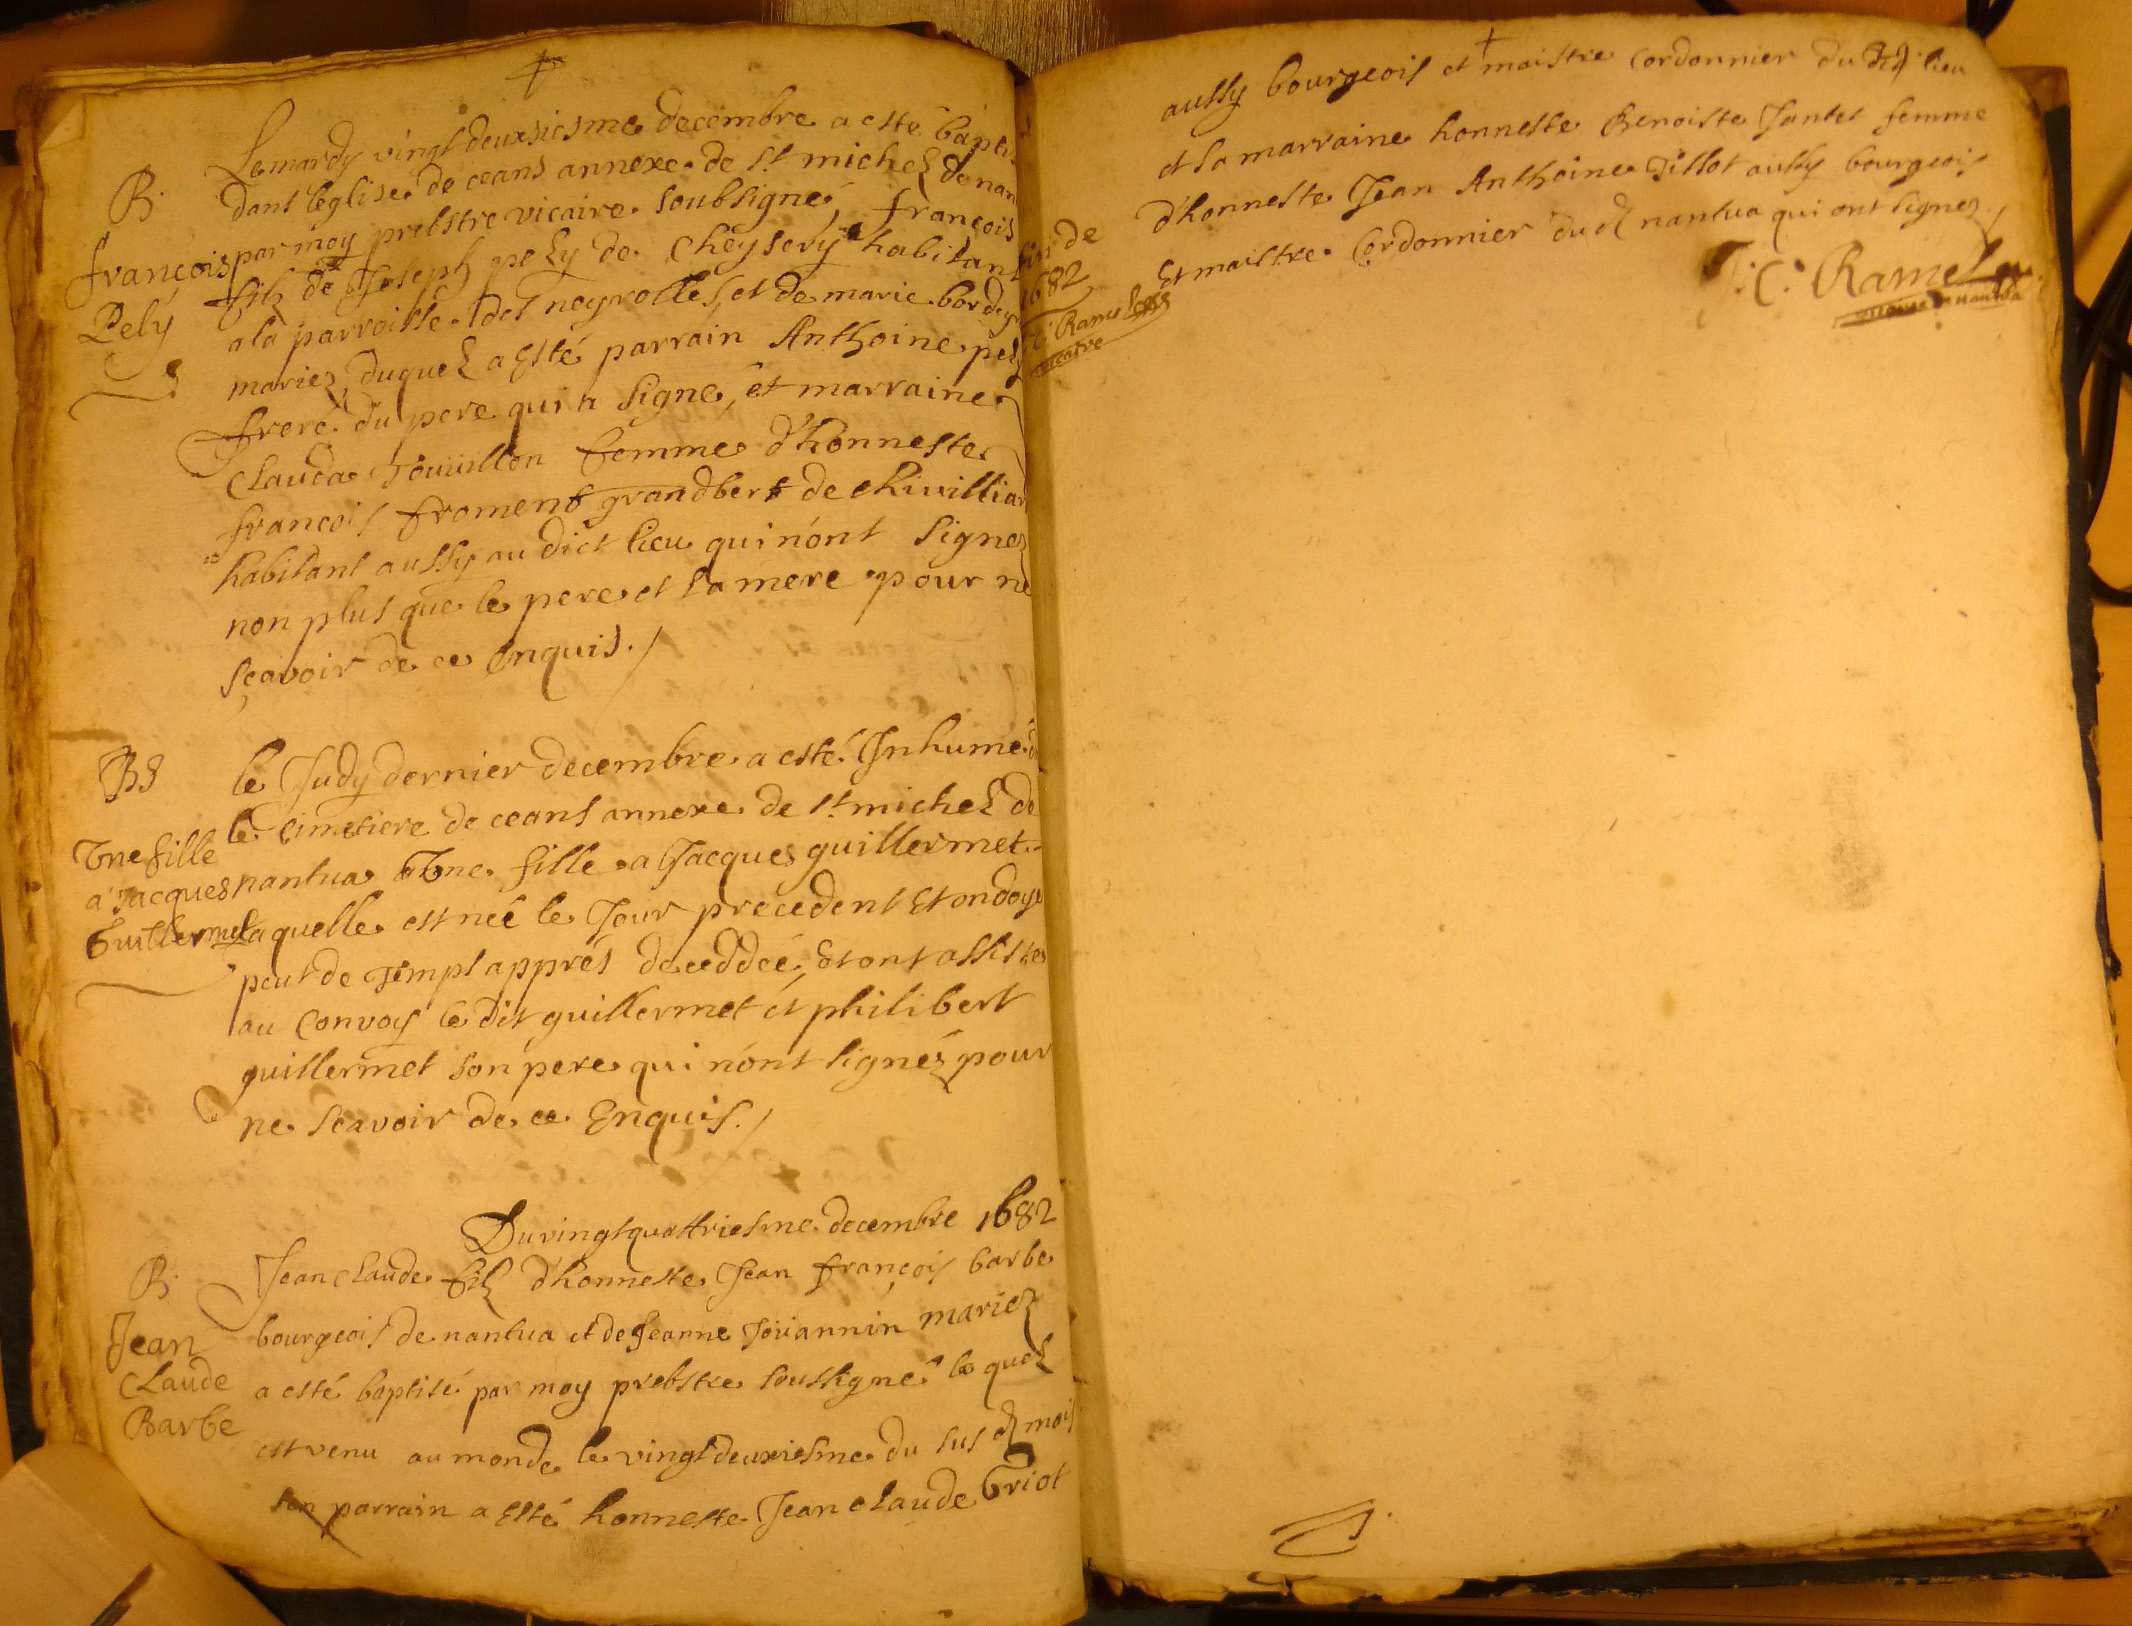 Le mardy vingt deuxsiesme decembre a esté bapti
B.
dans leglise de ceans annexe de st michel de nan
françois
par moy prebstre vicaire soubsigné, françois
Pely
filz de Joseph pely de Cheysery habitant
a la parroisse des neyrolles, et de marie bordey
mariez, duquel a Esté parrain Anthoine pely
frere du pere qui a signé, et marraine
Clauda Jouuillon femme d'honneste
françois froment grandbert de Chivilliar
habitant aussy au dict lieu qui n'ont signez
non plus que le pere et la mere pour ne
sçavoir de ce Enquis./
le Judy dernier decembre a esté Inhumé
le cimetiere de ceans annexe de st michel de
Vne fille
a Jacques
Guillermet
nantua Vne fille a Jacques guillermet
laquelle est neé le Jour precedent Et ondoyé
peut de Temps apprés deceddeé, Et ont assistez
au Convoy le dit guillermet et philibert
guillermet son pere qui n'ont signéz pour
ne scavoir de ce Enquis./
Du vingt quattriesme decembre 1682
B.
Jean
Claude
Barbe
Jean Claude filz d'honneste Jean françois barbe
bourgeois de nantua et de Jeanne Jouannin mariez
a esté baptisé par moy prebstre soussigné le quel
est venu au monde le vingt deuxiesme du sus d mois
son parrain a Esté honneste Jean Claude Griot
fin de
1682
Ramel
vicaire
aussy bourgeois et maistre Cordonnier du dict lieu
et la marraine honneste Benoiste Jantet femme
d'honneste Jean Anthoine Tillot aussy bourgeois
Et maistre Cordonnier du d nantua qui ont signez /
J. C. Ramel
vicaire de nantua